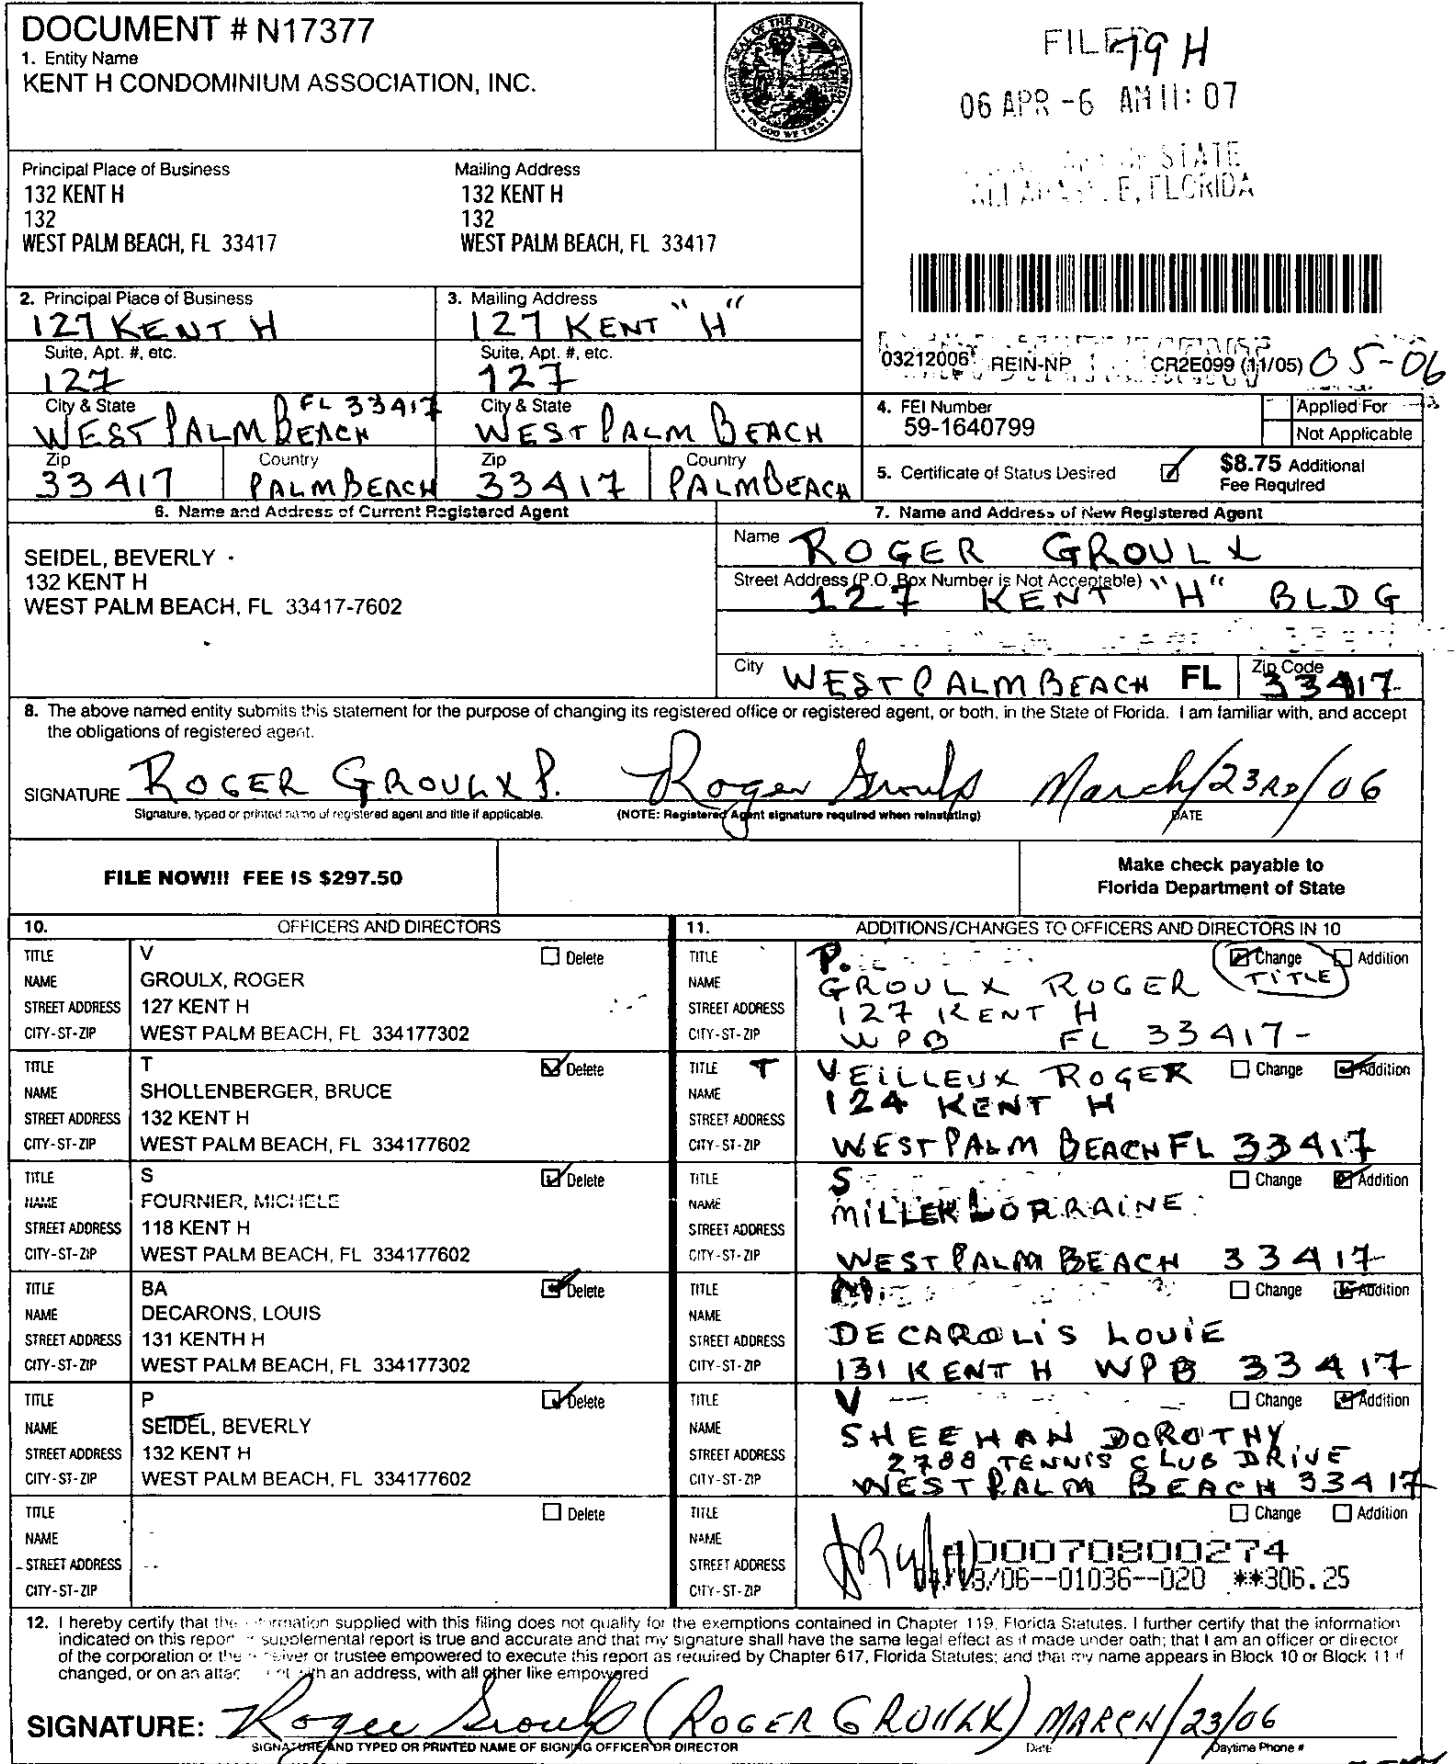 DOCUMENT # N17377
1. Entity Name
KENT H CONDOMINIUM ASSOCIATION, INC.
GREAT SEAL OF THE STATE OF FLORIDA
IN GOD WE TRUST
79 H
06 APR -6 AM 11: 07
STATE
FLORIDA
Principal Place of Business
132 KENT H
132
WEST PALM BEACH, FL 33417
Mailing Address
132 KENT H
132
WEST PALM BEACH, FL 33417
2. Principal Place of Business
127 KENT H
Suite, Apt. #, etc.
127
City & State
FL 33417
WEST PALM BEACH
Zip
33417
Country
PALM BEACH
3. Mailing Address
127 KENT "H"
Suite, Apt. #, etc.
127
City & State
WEST PALM BEACH
Zip
33417
Country
PALM BEACH
03212006 REIN-NP CR2E099 (11/05) 05-06
4. FEI Number
59-1640799
Applied For
Not Applicable
5. Certificate of Status Desired
$8.75 Additional
Fee Required
6. Name and Address of Current Registered Agent
SEIDEL, BEVERLY
132 KENT H
WEST PALM BEACH, FL 33417-7602
7. Name and Address of New Registered Agent
Name ROGER GROULX
Street Address (P.O. Box Number is Not Acceptable)
127 KENT "H" BLDG
City WEST PALM BEACH FL Zip Code 33417
8. The above named entity submits this statement for the purpose of changing its registered office or registered agent, or both, in the State of Florida. I am familiar with, and accept
the obligations of registered agent.
SIGNATURE ROGER GROULX P. Roger Groulx March/23RD/06
Signature, typed or printed name of registered agent and title if applicable. (NOTE: Registered Agent signature required when reinstating) DATE
FILE NOW!!! FEE IS $297.50
Make check payable to
Florida Department of State
10. OFFICERS AND DIRECTORS
TITLE V Delete
NAME GROULX, ROGER
STREET ADDRESS 127 KENT H
CITY-ST-ZIP WEST PALM BEACH, FL 334177302
TITLE T Delete
NAME SHOLLENBERGER, BRUCE
STREET ADDRESS 132 KENT H
CITY-ST-ZIP WEST PALM BEACH, FL 334177602
TITLE S Delete
NAME FOURNIER, MICHELE
STREET ADDRESS 118 KENT H
CITY-ST-ZIP WEST PALM BEACH, FL 334177602
TITLE BA Delete
NAME DECARONS, LOUIS
STREET ADDRESS 131 KENTH H
CITY-ST-ZIP WEST PALM BEACH, FL 334177302
TITLE P Delete
NAME SEIDEL, BEVERLY
STREET ADDRESS 132 KENT H
CITY-ST-ZIP WEST PALM BEACH, FL 334177602
TITLE Delete
NAME
STREET ADDRESS
CITY-ST-ZIP
11. ADDITIONS/CHANGES TO OFFICERS AND DIRECTORS IN 10
TITLE P. Change Addition
TITLE
NAME GROULX ROGER
STREET ADDRESS 127 KENT H
CITY-ST-ZIP WPB FL 33417-
TITLE T VEILLEUX ROGER Change Addition
NAME 124 KENT H
STREET ADDRESS
CITY-ST-ZIP WEST PALM BEACH FL 33417
TITLE S Change Addition
NAME MILLER LORRAINE
STREET ADDRESS
CITY-ST-ZIP WEST PALM BEACH 33417
TITLE Change Addition
NAME
STREET ADDRESS DECAROLIS LOUIE
CITY-ST-ZIP 131 KENT H WPB 33417
TITLE V Change Addition
NAME SHEEHAN DOROTHY
STREET ADDRESS 2788 TENNIS CLUB DRIVE
CITY-ST-ZIP WEST PALM BEACH 33417
TITLE Change Addition
NAME
STREET ADDRESS 000070800274
CITY-ST-ZIP /06--01036--020 **306.25
12. I hereby certify that the information supplied with this filing does not qualify for the exemptions contained in Chapter 119, Florida Statutes. I further certify that the information
indicated on this report or supplemental report is true and accurate and that my signature shall have the same legal effect as if made under oath; that I am an officer or director
of the corporation or the receiver or trustee empowered to execute this report as required by Chapter 617, Florida Statutes; and that my name appears in Block 10 or Block 11 if
changed, or on an attachment with an address, with all other like empowered
SIGNATURE: Roger Groulx (ROGER GROULX) MARCH/23/06
SIGNATURE AND TYPED OR PRINTED NAME OF SIGNING OFFICER OR DIRECTOR Date Daytime Phone #